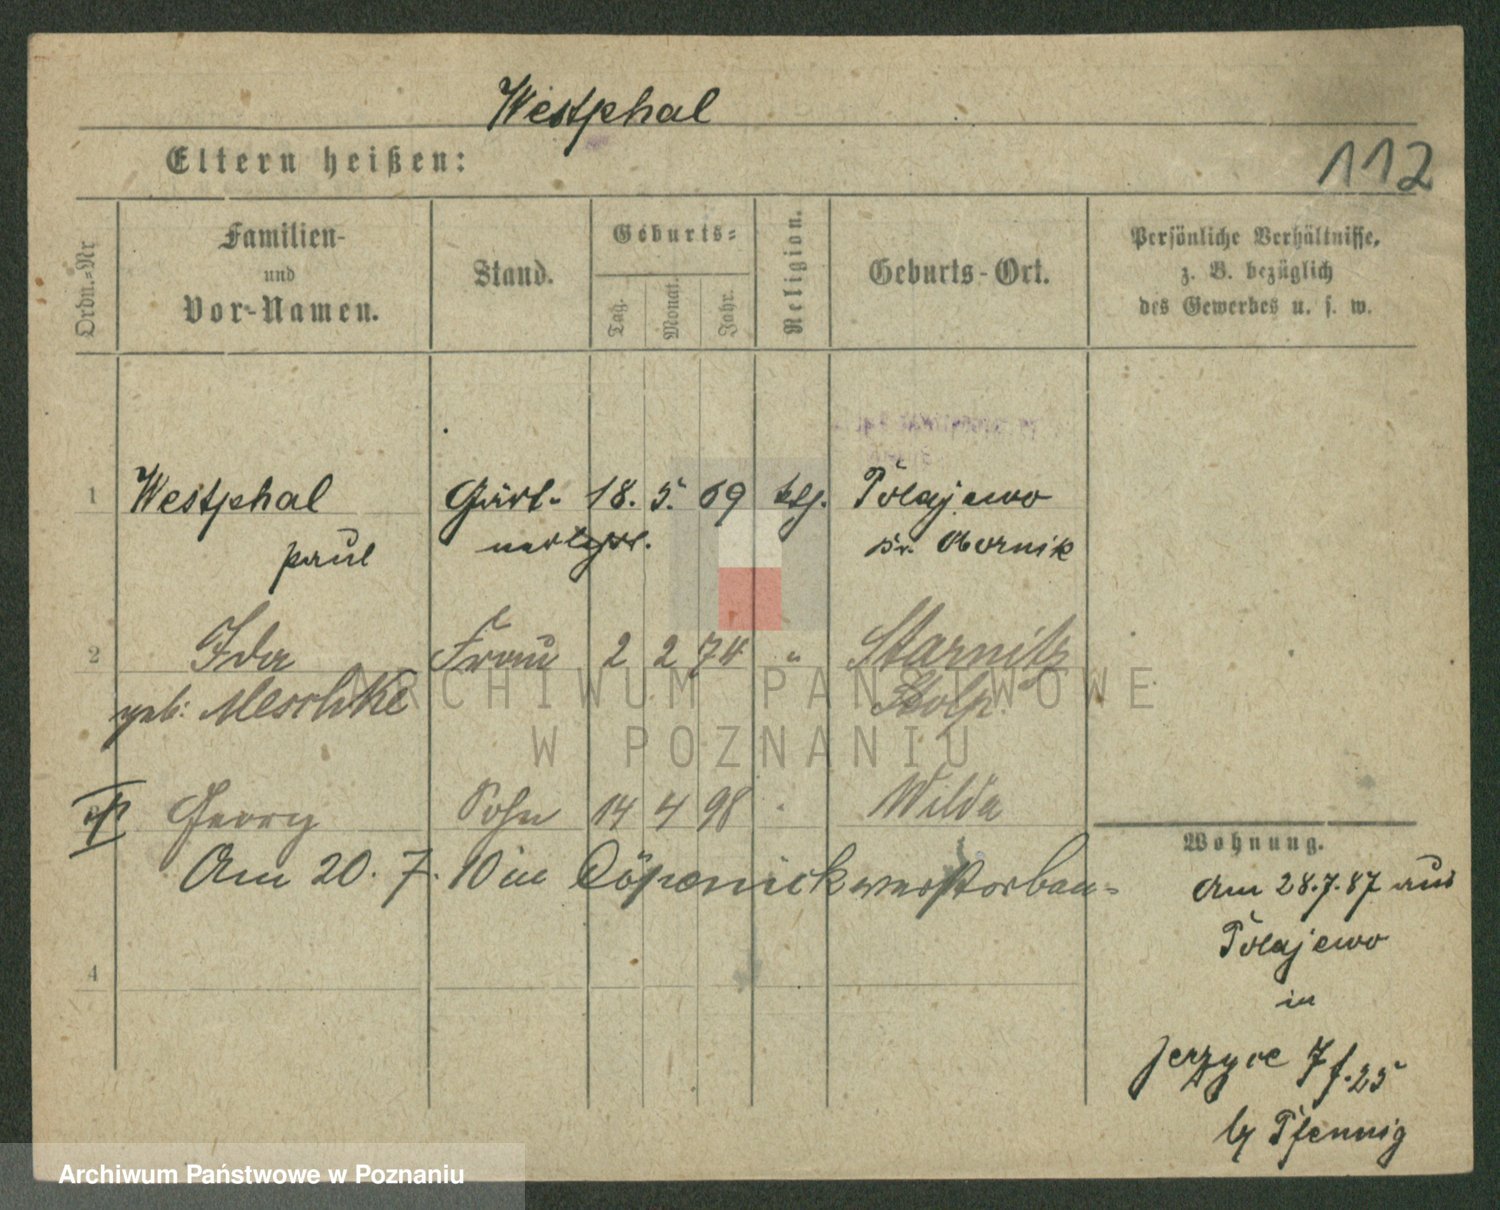 Westphal
Eltern heißen:
112
Ordn.=Nr
Familien-
und
Vor-Namen.
Stand.
Geburts=
Tag.
Monat.
Jahr.
Religion.
Geburts-Ort.
Persönliche Verhältnisse,
z. B. bezüglich
des Gewerbes u. s. w.
1 Westphal Gärt- 18. 5. 69 ktg. Polajewo
Paul Kr. Obornik
2 Ida Frau 2 2 74 " Starnitz
geb: Meschke Stolp.
Georg Sohn 14 4 98 Wilda
Am 20. 7. 10 in Cöpenick verstorben=
4
Wohnung.
Am 28.7.87 aus
Polajewo
in
Jerzyce 7 f. 25
by Pfennig
ARCHIWUM PAŃSTWOWE
W POZNANIU
Archiwum Państwowe w Poznaniu